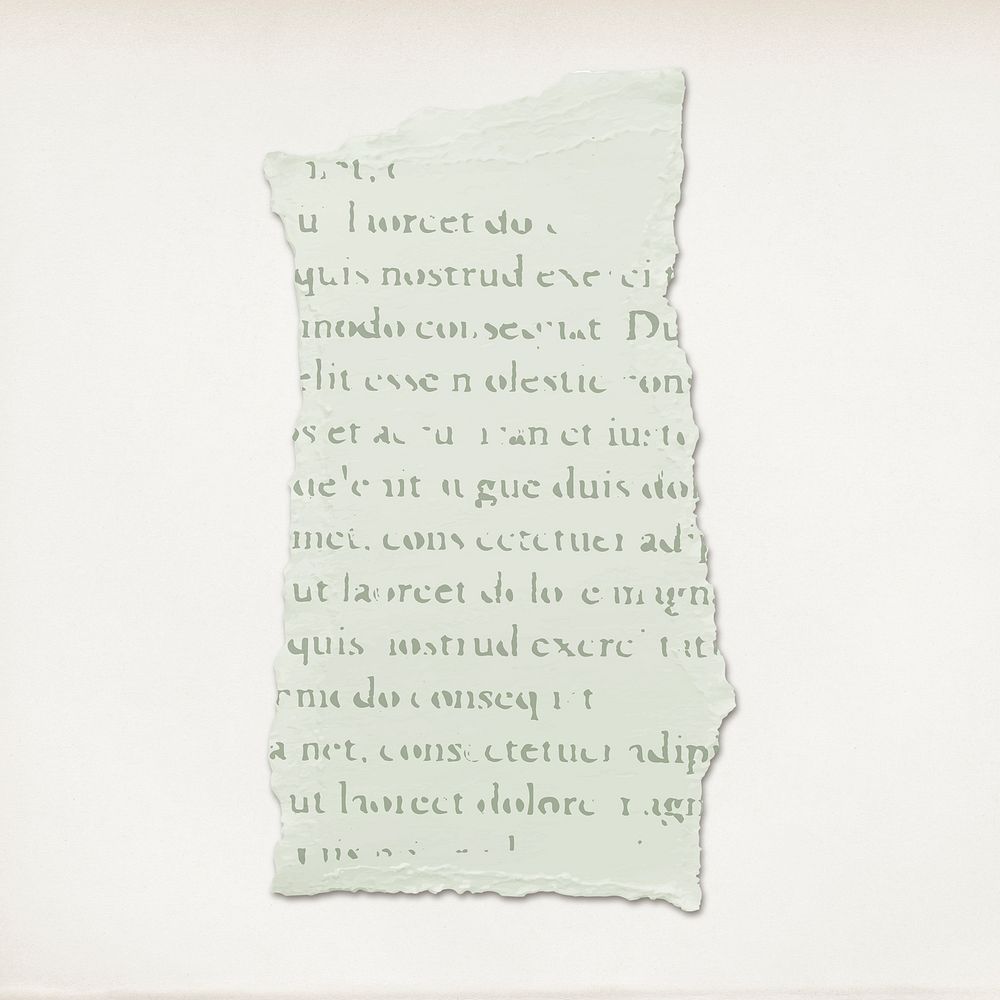 net,
u laorcet do
quis nostrud exerci
modo consequat Du
elit esse molestie cons
os et ac u an et iusto
de'enit augue duis dol
met, consectetuer adip
ut laoreet dolore magn
quis nostrud exerci tati
mmodo consequat
a net, consectetuer adip
ut laoreet dolore magn